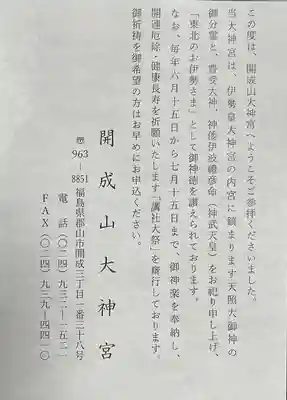 この度は、開成山大神宮へようこそご参拝くださいました。
当大神宮は、伊勢皇大神宮の内宮に鎮まります天照大御神の
御分霊と、豊受大神、神倭伊波禮彦命（神武天皇）をお祀り申し上げ、
「東北のお伊勢さま」として御神徳を讃えられております。
なお、毎年六月十五日から七月十五日まで、御神楽を奉納し、
開運厄除・健康長寿を祈願いたします「講社大祭」を齋行しております。
御祈祷を御希望の方はお早めにお申込ください。
開成山大神宮
〠963－8851 福島県郡山市開成三丁目一番三十八号
電話（〇二四）九三二－一五二一
FAX（〇二四）九三九－四四一〇